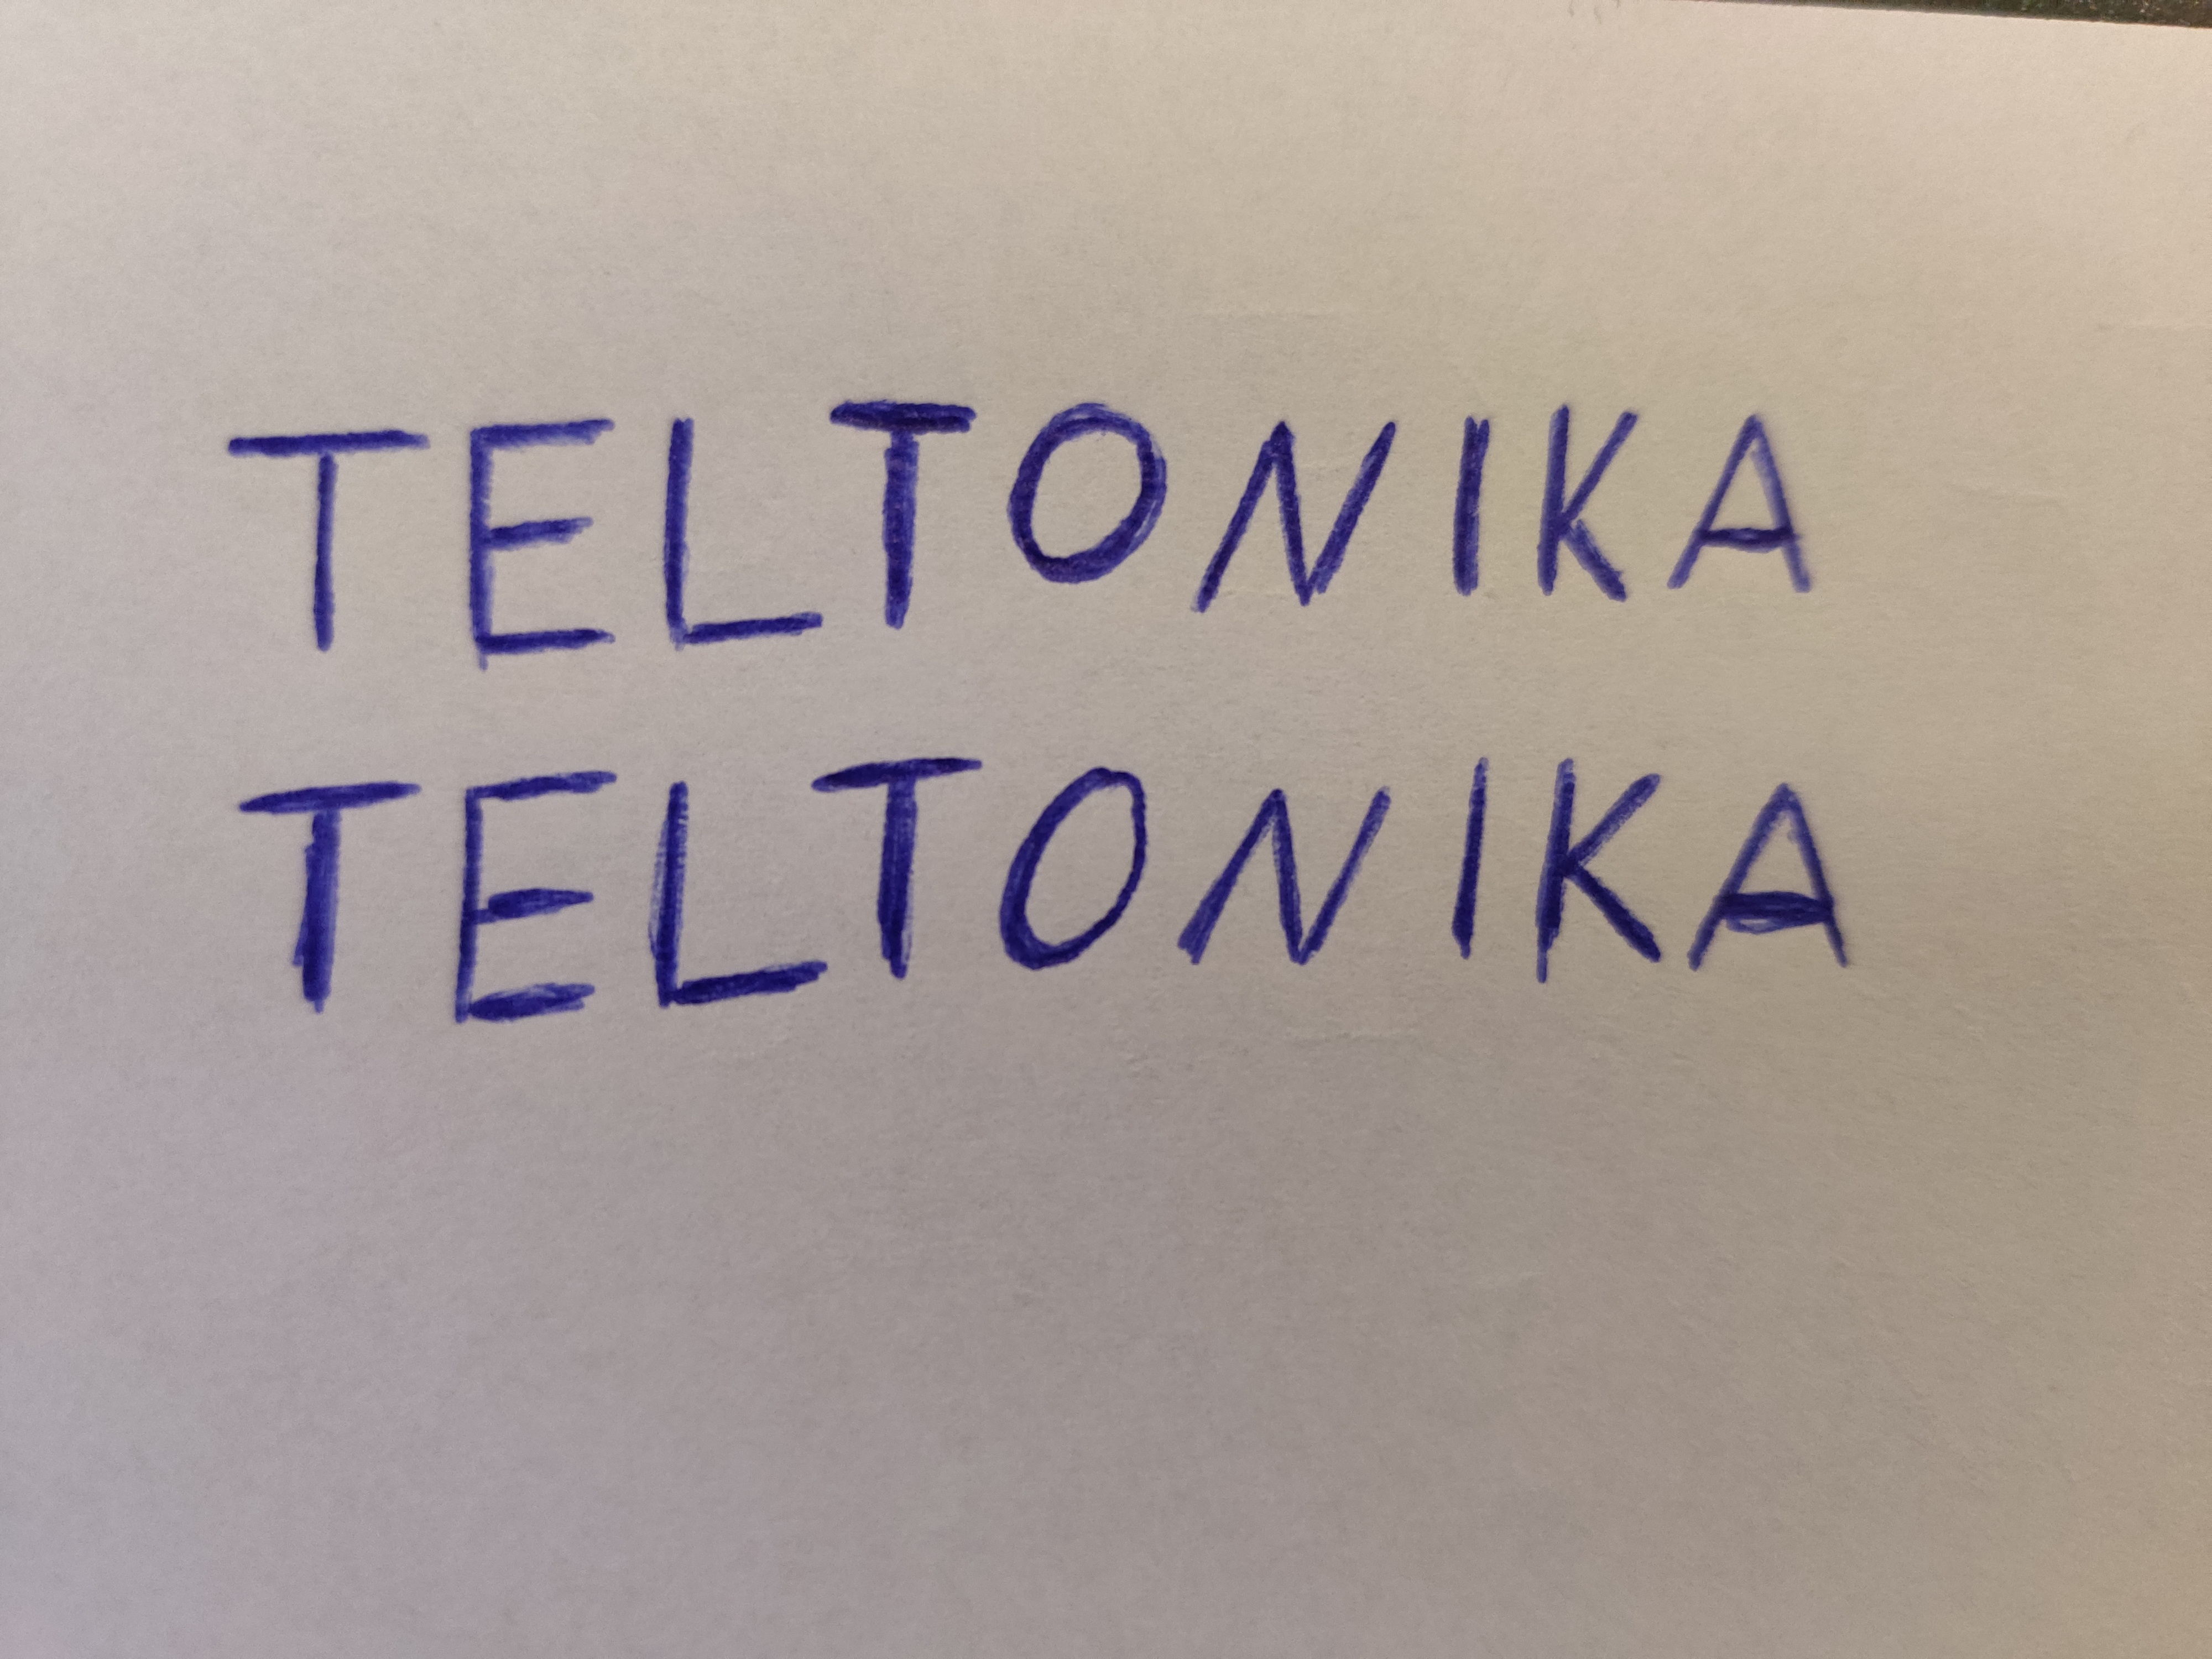 TELTONIKA
TELTONIKA